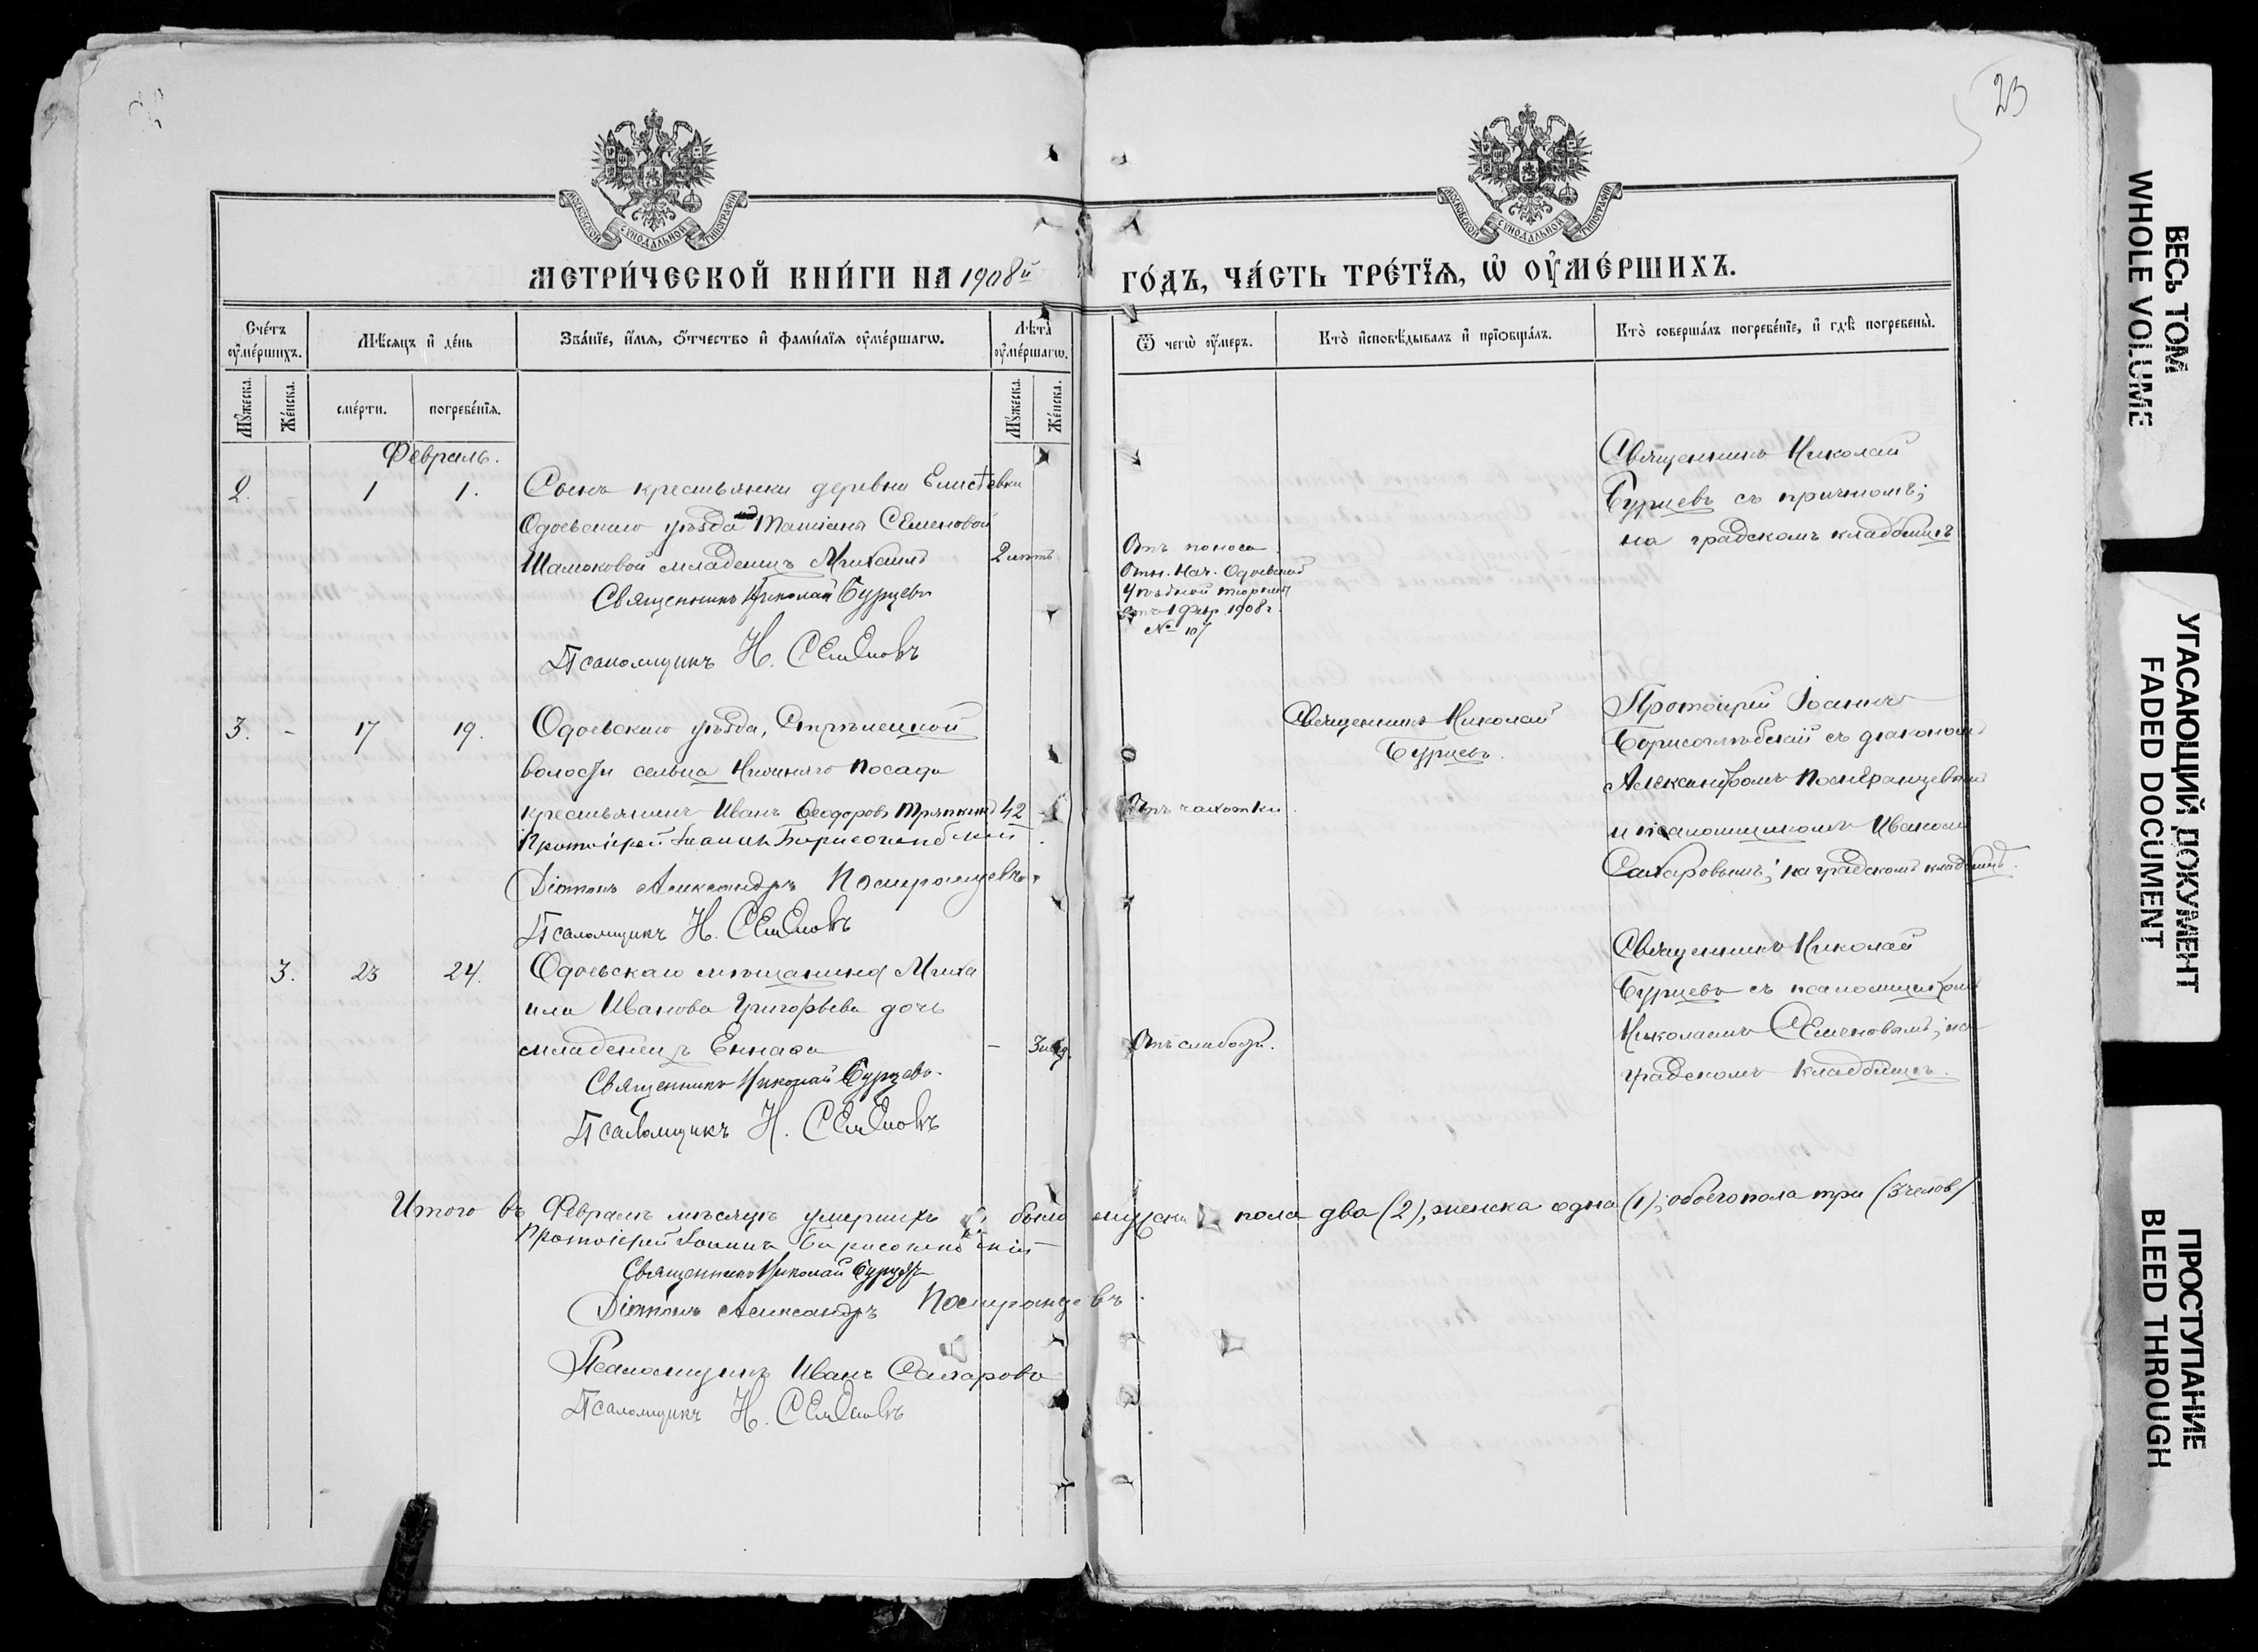 23
МОСКОВСКОЙ СѴНОДАЛЬНОЙ ТИПОГРАФІИ
МОСКОВСКОЙ СѴНОДАЛЬНОЙ ТИПОГРАФІИ
МЕТРИ́ЧЕСКОЙ КНИ́ГИ НА 1908й ГО́ДЪ, ЧА́СТЬ ТРЕ́ТІѦ, Ѡ҆ ОУ҆МЕ́РШИХЪ.
Сче́тъ оу҆ме́ршихъ.
Мѣ́сяцъ и҆ де́нь
Зва́нїе, и҆́мѧ, ѻ҆́тчество и҆ фами́лїѧ оу҆ме́ршагѡ.
Лѣта̀ оу҆ме́ршагѡ.
Ѿ чегѡ̀ оу҆́меръ.
Кто̀ и҆сповѣ́дывалъ и҆ прїѡбща́лъ.
Кто̀ соверша́лъ погребе́нїе, и҆ гдѣ̀ погребены̀.
Мꙋ́жеска.
Же́нска.
сме́рти.
погребе́нїѧ.
Мꙋ́жеска.
Же́нска.
Февраль.
2. 1 1.
Сынъ крестьянки деревни
Одоевскаго уѣзда Семеновой
младенецъ Михаилъ 2 лѣтъ
Священникъ Николай Бурцевъ
Псаломщикъ Н. Семеновъ
Отъ поноса.
Отн. Нач. Одоевской
Уѣздной тюрьмы
отъ 1 Февр. 1908 г.
№ 107
Священникъ Николай
Бурцевъ съ причтомъ;
на градскомъ кладбищѣ
3. - 17 19.
Одоевскаго уѣзда, Стрѣлецкой
волости сельца Нижняго Посада
крестьянинъ Иванъ Ѳеодоровъ Тряпкинъ 42
Протоіерей Іоаннъ Борисоглѣбскій
Діаконъ Александръ
Псаломщикъ Н. Семеновъ
Отъ чахотки.
Священникъ Николай
Бурцевъ.
Протоіерей Іоаннъ
Борисоглѣбскій съ діакономъ
Александромъ
и псаломщикомъ Иваномъ
Сахаровымъ; на градскомъ кладбищѣ.
3. 23 24.
Одоевскаго мѣщанина Миха
ила Иванова Григорьева дочь
младенецъ - 3 нед.
Священникъ Николай Бурцевъ.
Псаломщикъ Н. Семеновъ
Отъ слабости.
Священникъ Николай
Бурцевъ съ псаломщикомъ
Николаемъ Семеновымъ; на
градскомъ кладбищѣ.
Итого въ Февралѣ мѣсяцѣ умершихъ было мужска пола два (2), женска одна (1); обоего пола три (3 челов)
Протоіерей Іоаннъ Борисоглѣбскій
Священникъ Николай Бурцевъ
Діаконъ Александръ
Псаломщикъ Иванъ Сахаровъ
Псаломщикъ Н. Семеновъ
ВЕСЬ ТОМ
WHOLE VOLUME
УГАСАЮЩИЙ ДОКУМЕНТ
FADED DOCUMENT
ПРОСТУПАНИЕ
BLEED THROUGH